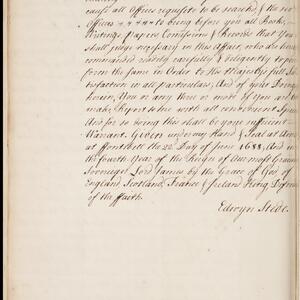 cause all Offices requisite to be searched, & the
Offices to being before you all Books,
Writings Papers Comissions & Records that You
shall judge necessary in this Affair, who are hereby
commanded readily carefully & diligently to per-
form the same in Order to His Majestys full Sat-
isfaction in all particulars; And of your Doings
herein, You or any three or more of You are to
make Report to me with all convenient Speed
And for so doing this shall be your sufficient
Warrant. Given under my Hand & Seal at Arms
at Fontbell the 22d Day of June 1688, And in
the fourth Year of the Reign of Our most Gracious
Sovereign Lord James by the Grace of God of
England Scotland, France & Ireland King Defender
of the Faith.
Edwyn Stede.